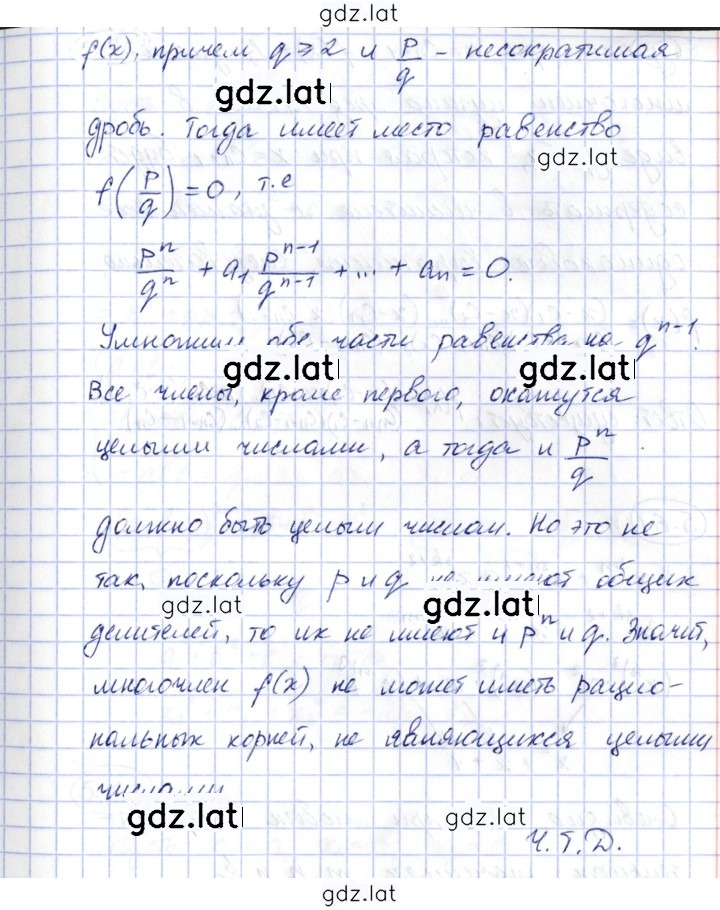 gdz.lat
f(x), причем q ⩾ 2 и p/q – несократимая
gdz.lat
дробь. Тогда имеет место равенство
gdz.lat
f(p/q) = 0, т.е
p^n/q^n + a_1 p^{n-1}/q^{n-1} + ... + a_n = 0.
Умножим обе части равенства на q^{n-1}.
gdz.lat
gdz.lat
Все члены, кроме первого, окажутся
целыми числами, а тогда и p^n/q
должно быть целым числом. Но это не
так, поскольку p и q не имеют общих
gdz.lat
gdz.lat
делителей, то их не имеют и p^n и q. Значит,
многочлен f(x) не может иметь рацио-
нальных корней, не являющихся целыми
числами
gdz.lat
gdz.lat
Ч.Т.Д.
gdz.lat